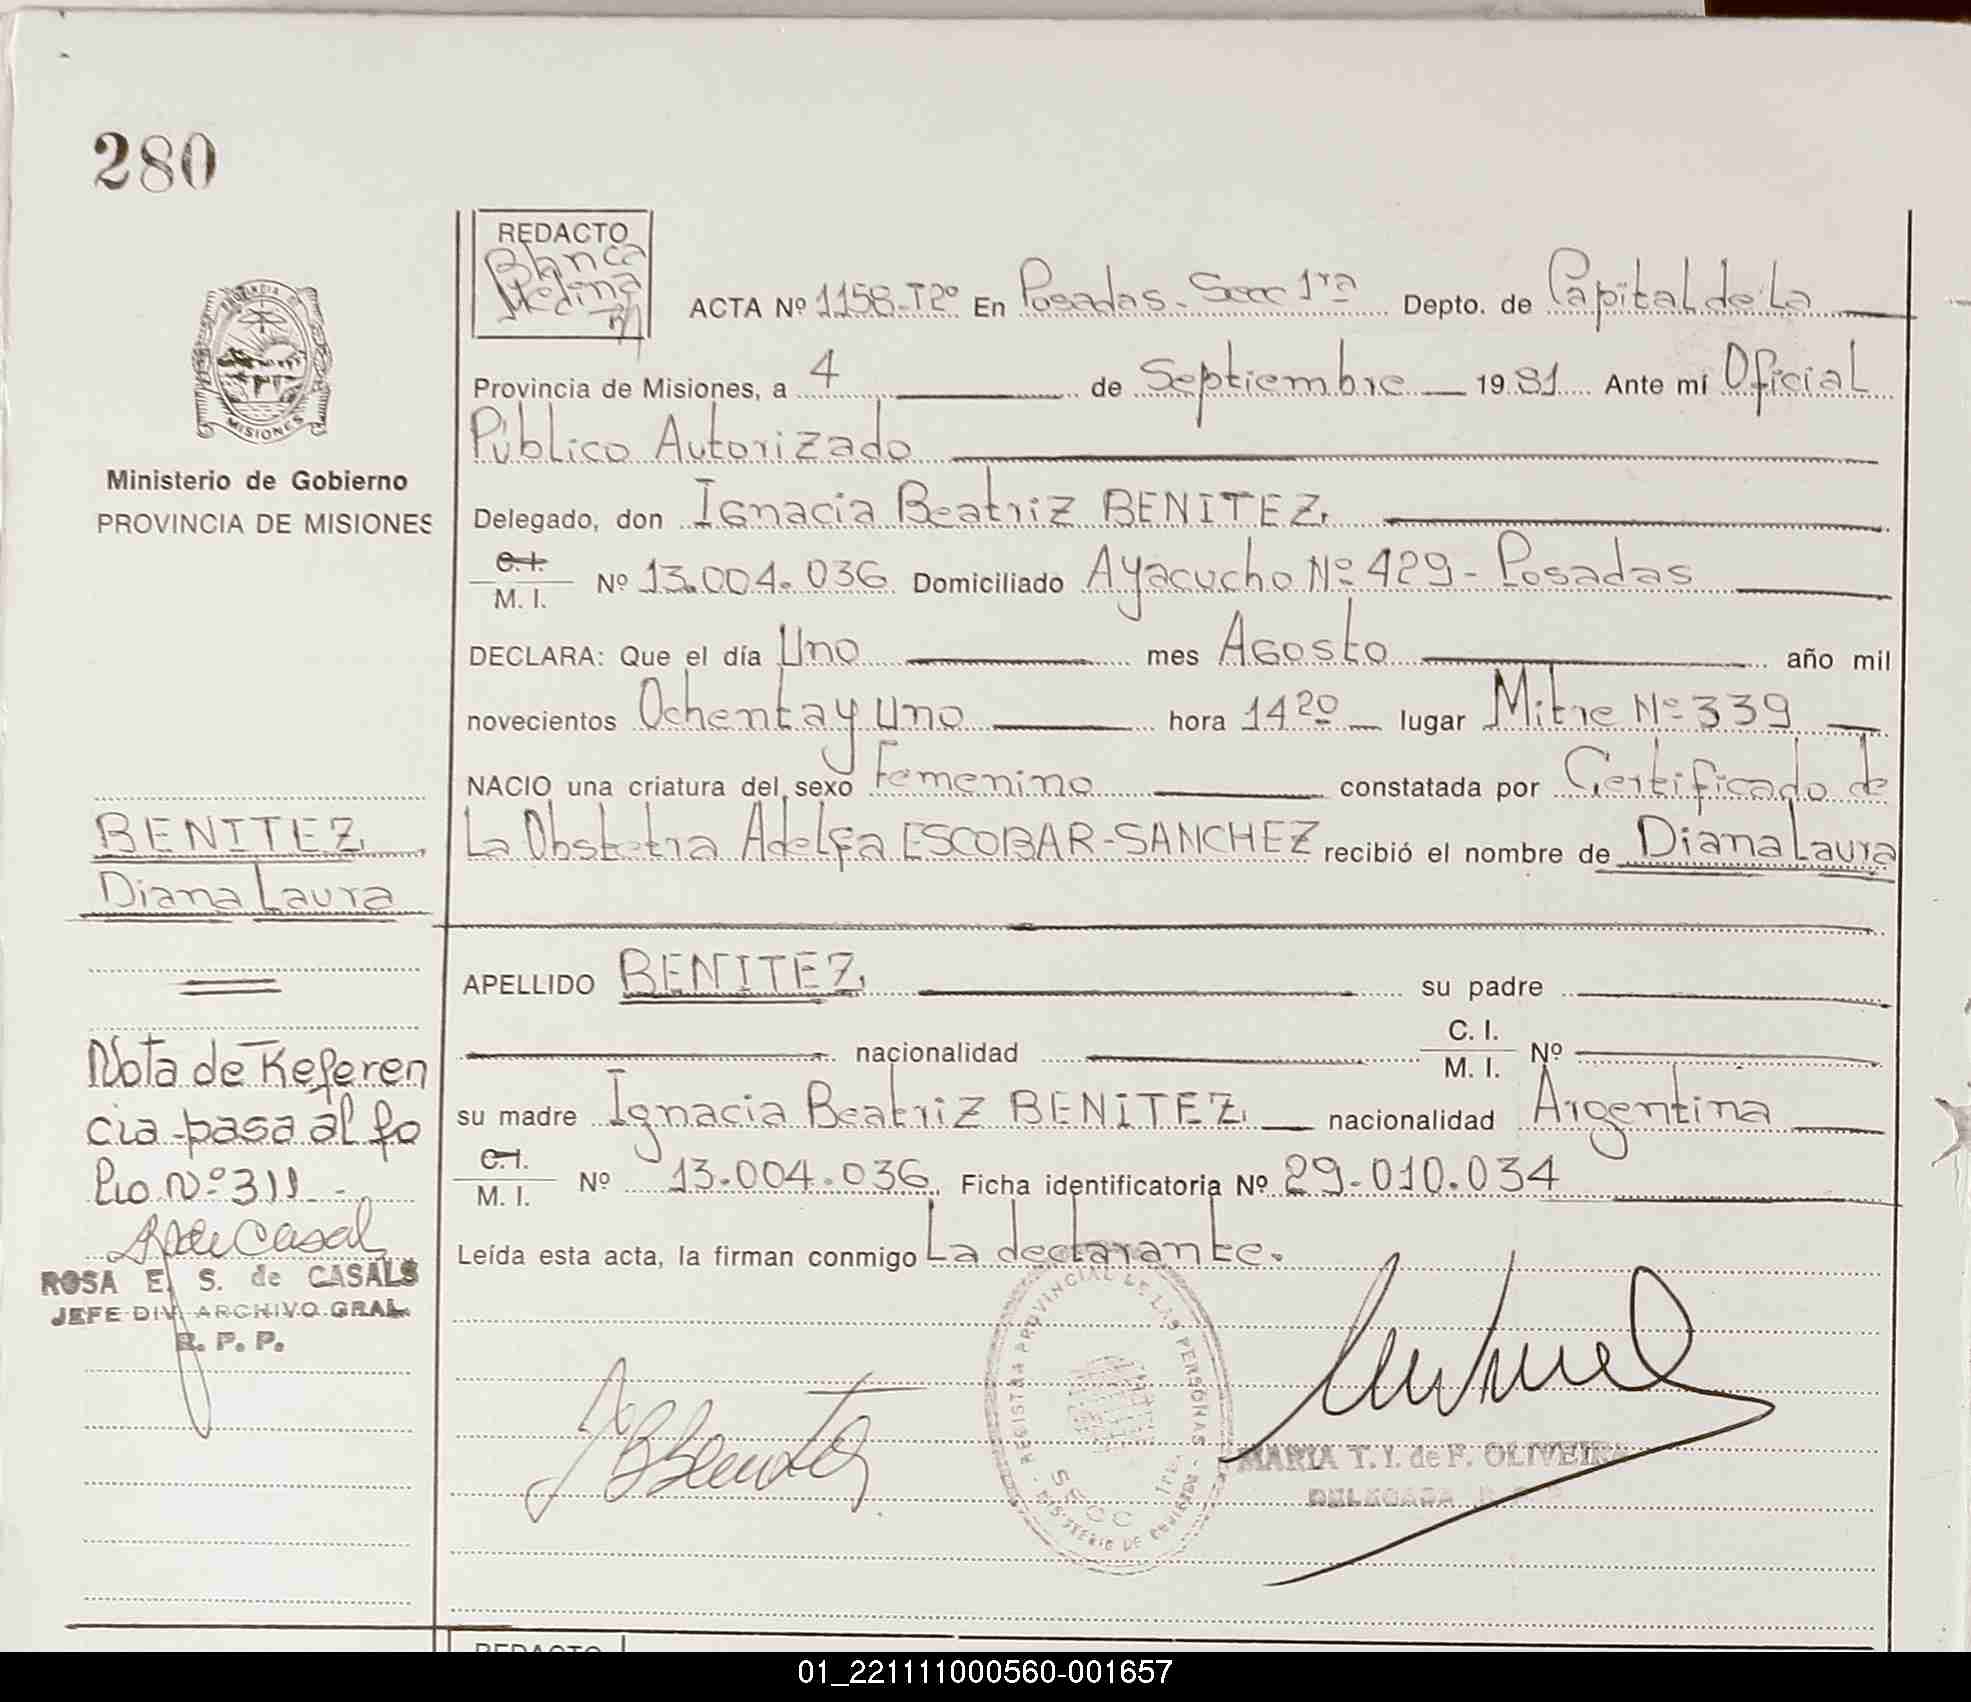 280
REDACTO
Blanca
Medina
PROVINCIA DE
MISIONES
Ministerio de Gobierno
PROVINCIA DE MISIONES
ACTA Nº 1158-T2º En Posadas-Secc 1ra Depto. de Capital de La
Provincia de Misiones, a 4 de Septiembre 1981 Ante mí Oficial
Público Autorizado
Delegado, don Ignacia Beatriz BENITEZ.
C.I.
M. I. Nº 13.004.036 Domiciliado Ayacucho Nº 429 - Posadas
DECLARA: Que el día Uno mes Agosto año mil
novecientos Ochenta y uno hora 14 20 lugar Mitre Nº 339
NACIO una criatura del sexo Femenino constatada por Certificado de
La Obstetra Adelfa ESCOBAR-SANCHEZ recibió el nombre de Diana Laura
BENITEZ
Diana Laura
APELLIDO BENITEZ. su padre
nacionalidad C. I.
M. I. Nº
su madre Ignacia Beatriz BENITEZ. nacionalidad Argentina
C.I.
M. I. Nº 13.004.036 Ficha identificatoria Nº 29.010.034
Leída esta acta, la firman conmigo La declarante.
Nota de Referen
cia pasa al fo
lio Nº 311
ROSA E. S. de CASALS
JEFE DIV. ARCHIVO GRAL.
R. P. P.
REGISTRO PROVINCIAL DE LAS PERSONAS
MINISTERIO DE GOBIERNO
SECC 1ra.
MARIA T. I. de F. OLIVEIRA
DELEGADA
REDACTO
01_221111000560-001657